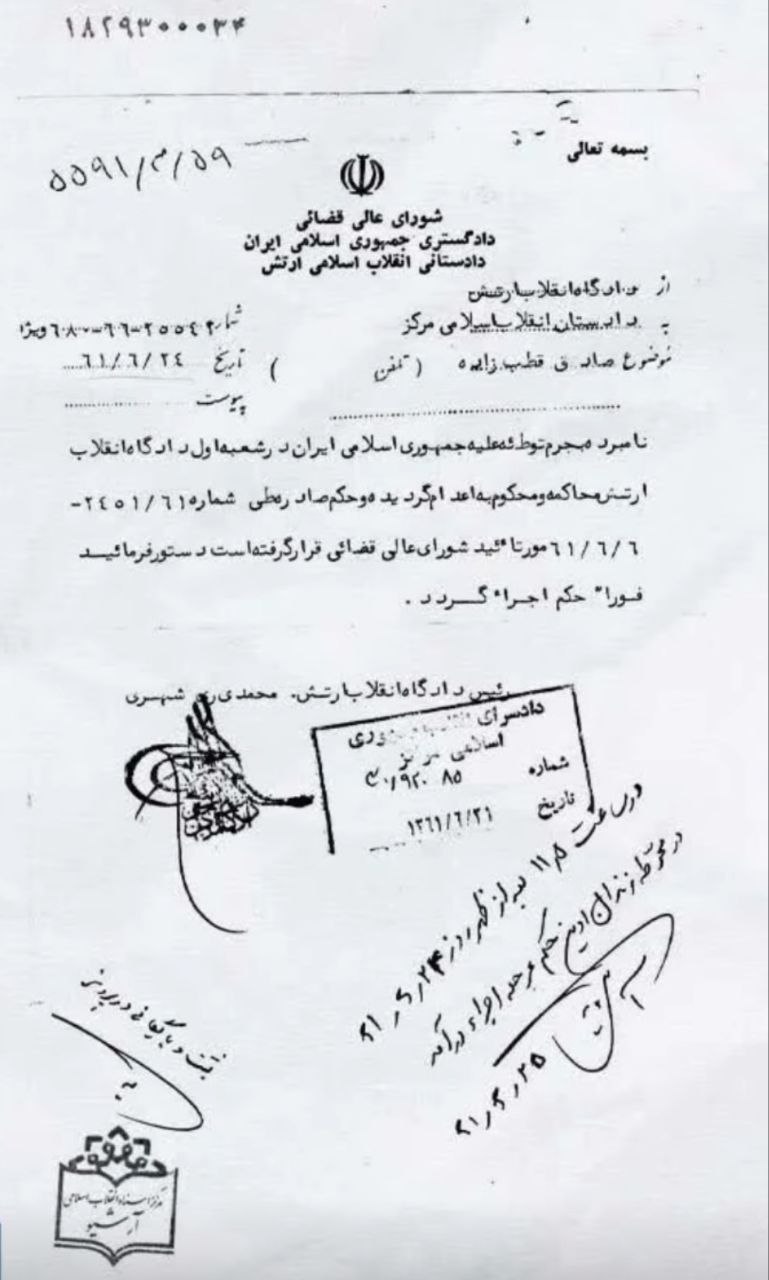 ۱۸۲۹۳۰۰۰۳۴
بسمه تعالی
۵۵۹۱/م/۵۹
شورای عالی قضائی
دادگستری جمهوری اسلامی ایران
دادستانی انقلاب اسلامی ارتش
از دادگاه انقلاب ارتش
به دادستان انقلاب اسلامی مرکز
موضوع صادق قطب زاده ( تلفن )
شماره ۲۵۵۴۲-۶۶-۶۸۰ ویژه
تاریخ ۶۱/۶/۲۴
پیوست
نامبرده بجرم توطئه علیه جمهوری اسلامی ایران در شعبه اول دادگاه انقلاب
ارتش محاکمه و محکوم به اعدام گردیده و حکم صادره طی شماره ۲۴۵۱/۶۱-
۶۱/۶/۶ مورد تائید شورای عالی قضائی قرار گرفته است دستور فرمائید
فوراً حکم اجراء گردد .
رئیس دادگاه انقلاب ارتش. محمدی ری شهری
دادسرای انقلاب جمهوری
اسلامی مرکز
شماره
تاریخ ۱۳۶۱/۶/۲۱
در ساعت ۱۱٫۵ بعد از ظهر روز ۲۴ر۶ر۶۱
در محوطه زندان اوین حکم بمرحله اجراء درآمد
۲۵ر۶ر۶۱
ثبت و بایگانی در پرونده
مرکز اسناد انقلاب اسلامی
آرشیو